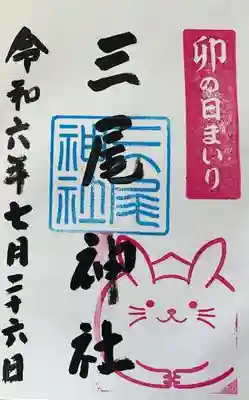 卯の日まいり
三尾神社
三尾神社
令和六年七月二十六日